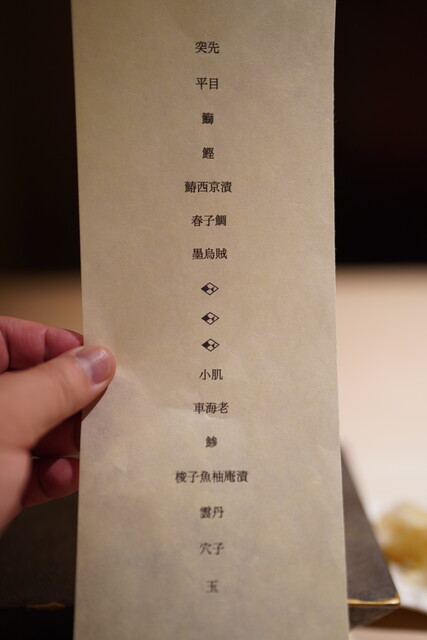 突先
平目
鰤
鰹
鰆西京漬
春子鯛
墨烏賊
小肌
車海老
鯵
梭子魚柚庵漬
雲丹
穴子
玉